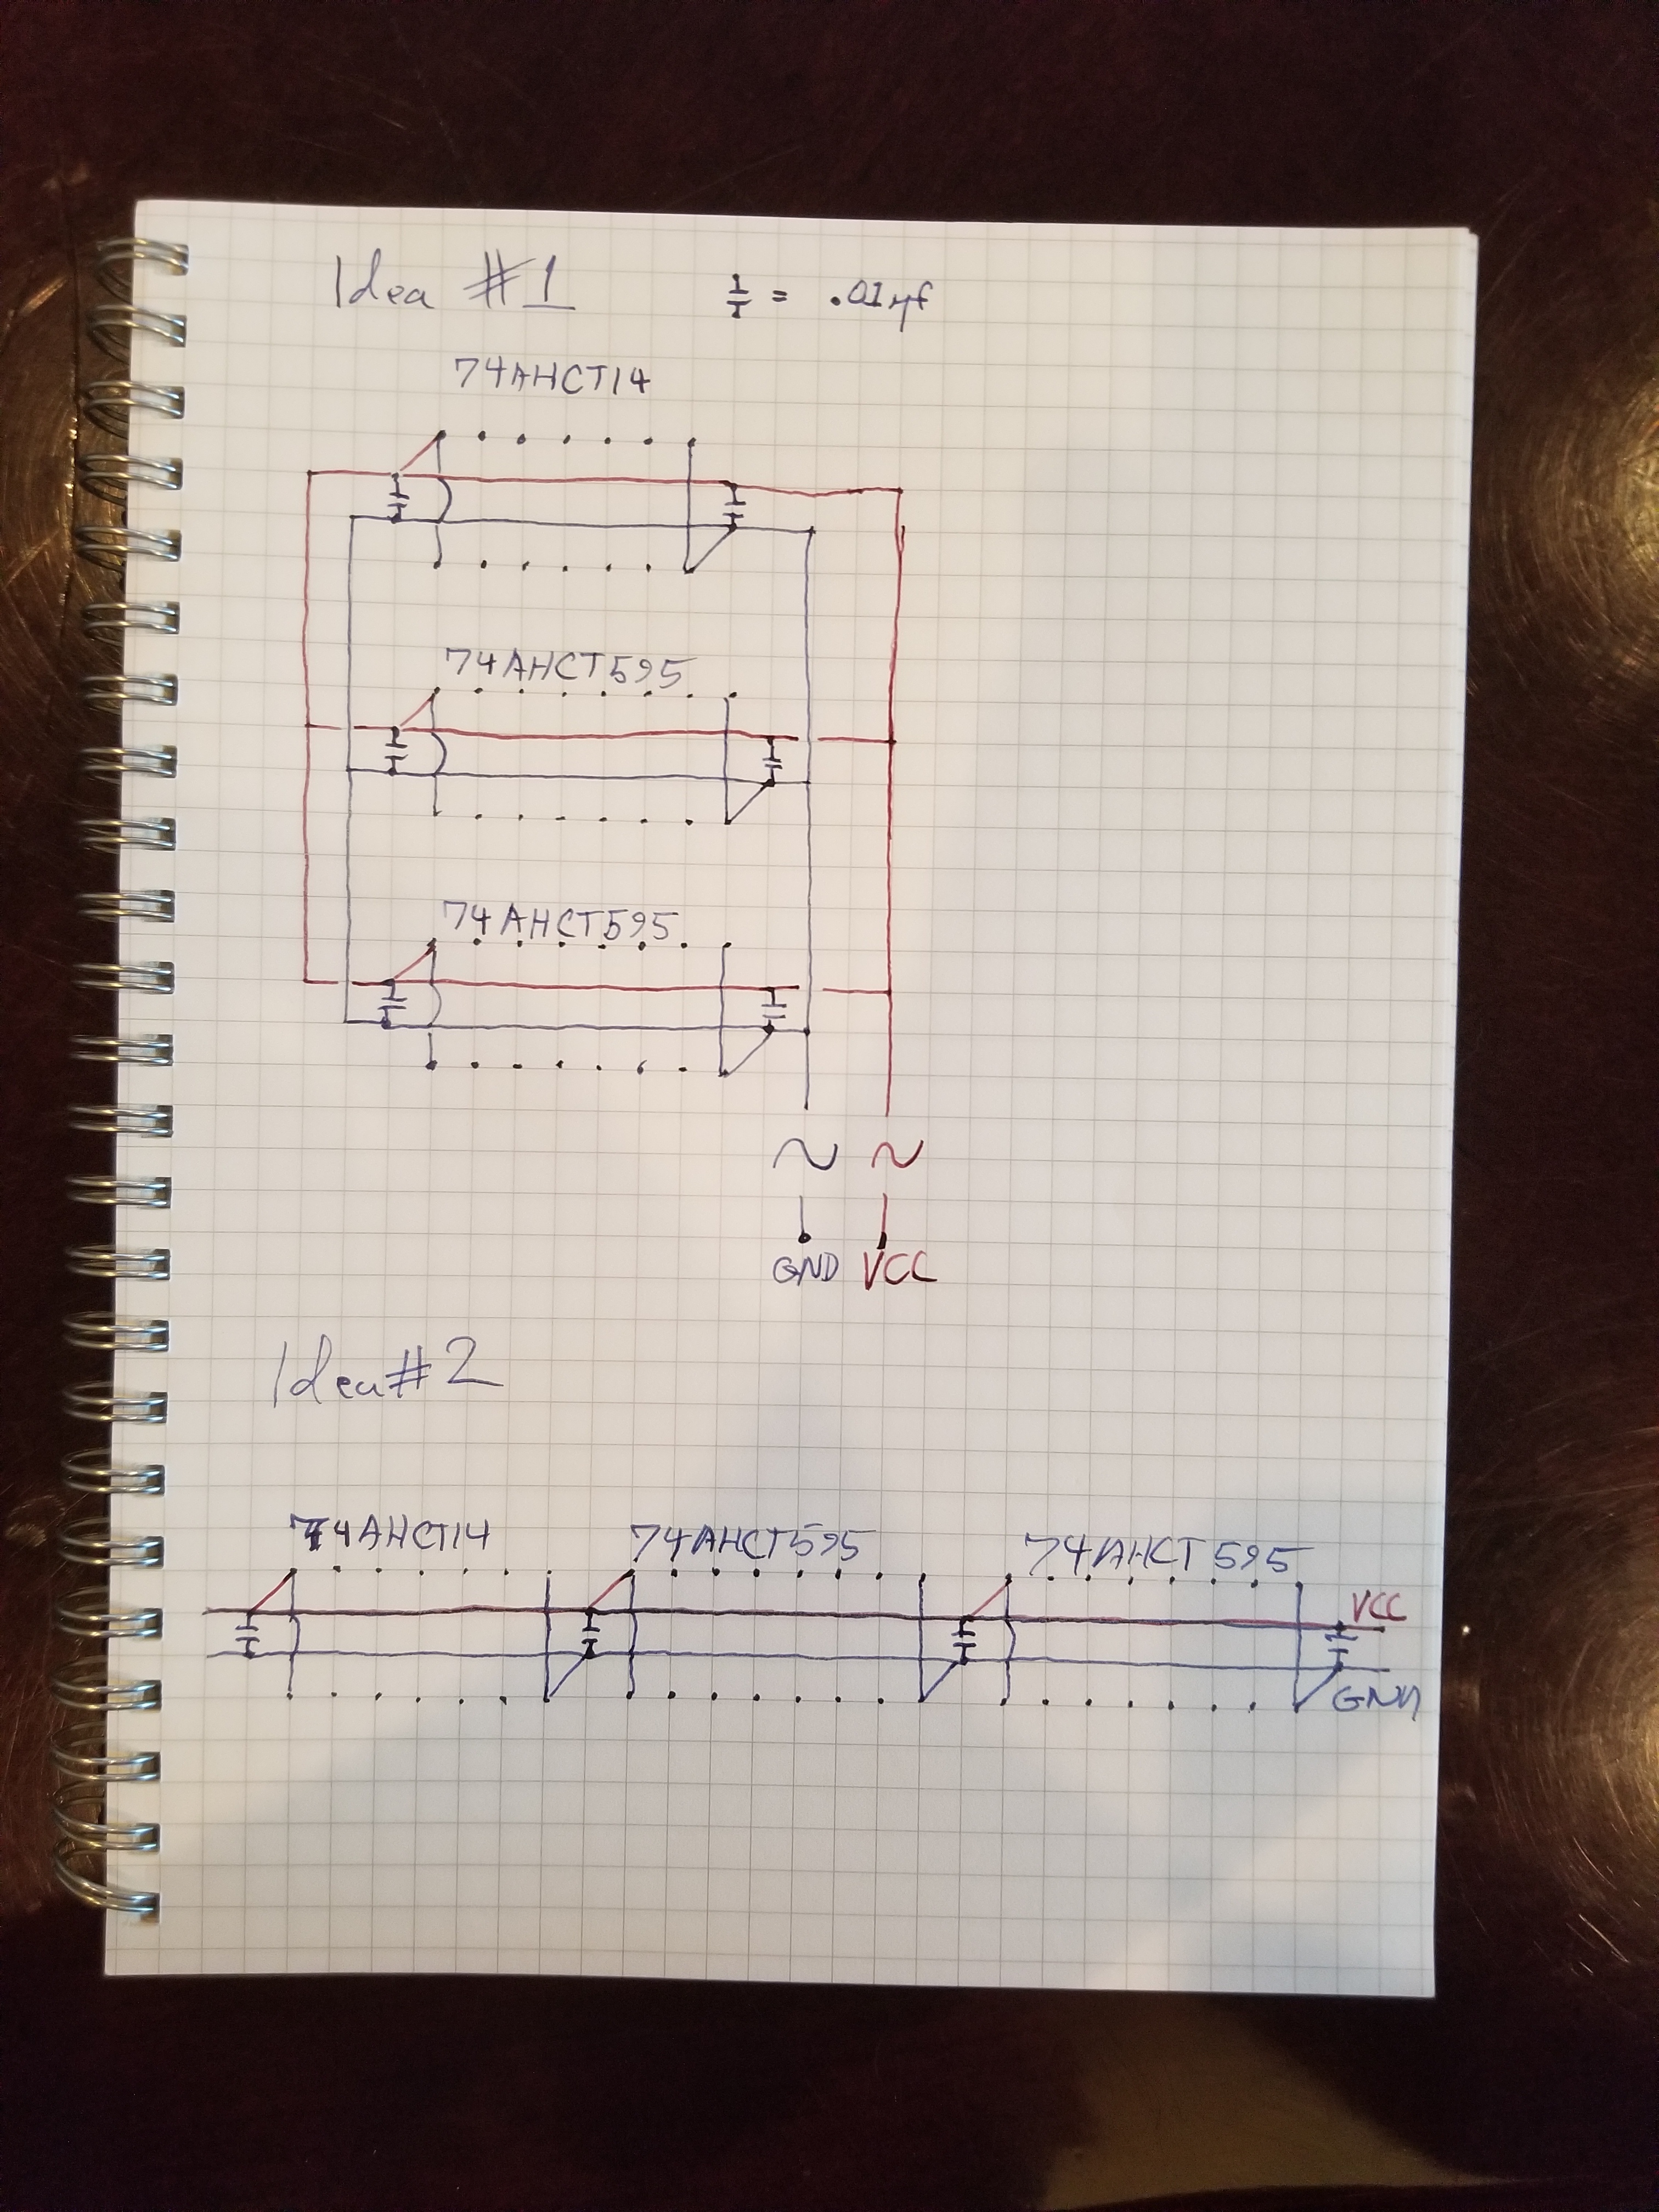 Idea #1
= .01µf
74AHCT14
74AHCT595
74AHCT595
GND VCC
Idea #2
74AHCT14 74AHCT595 74AHCT595
VCC
GND